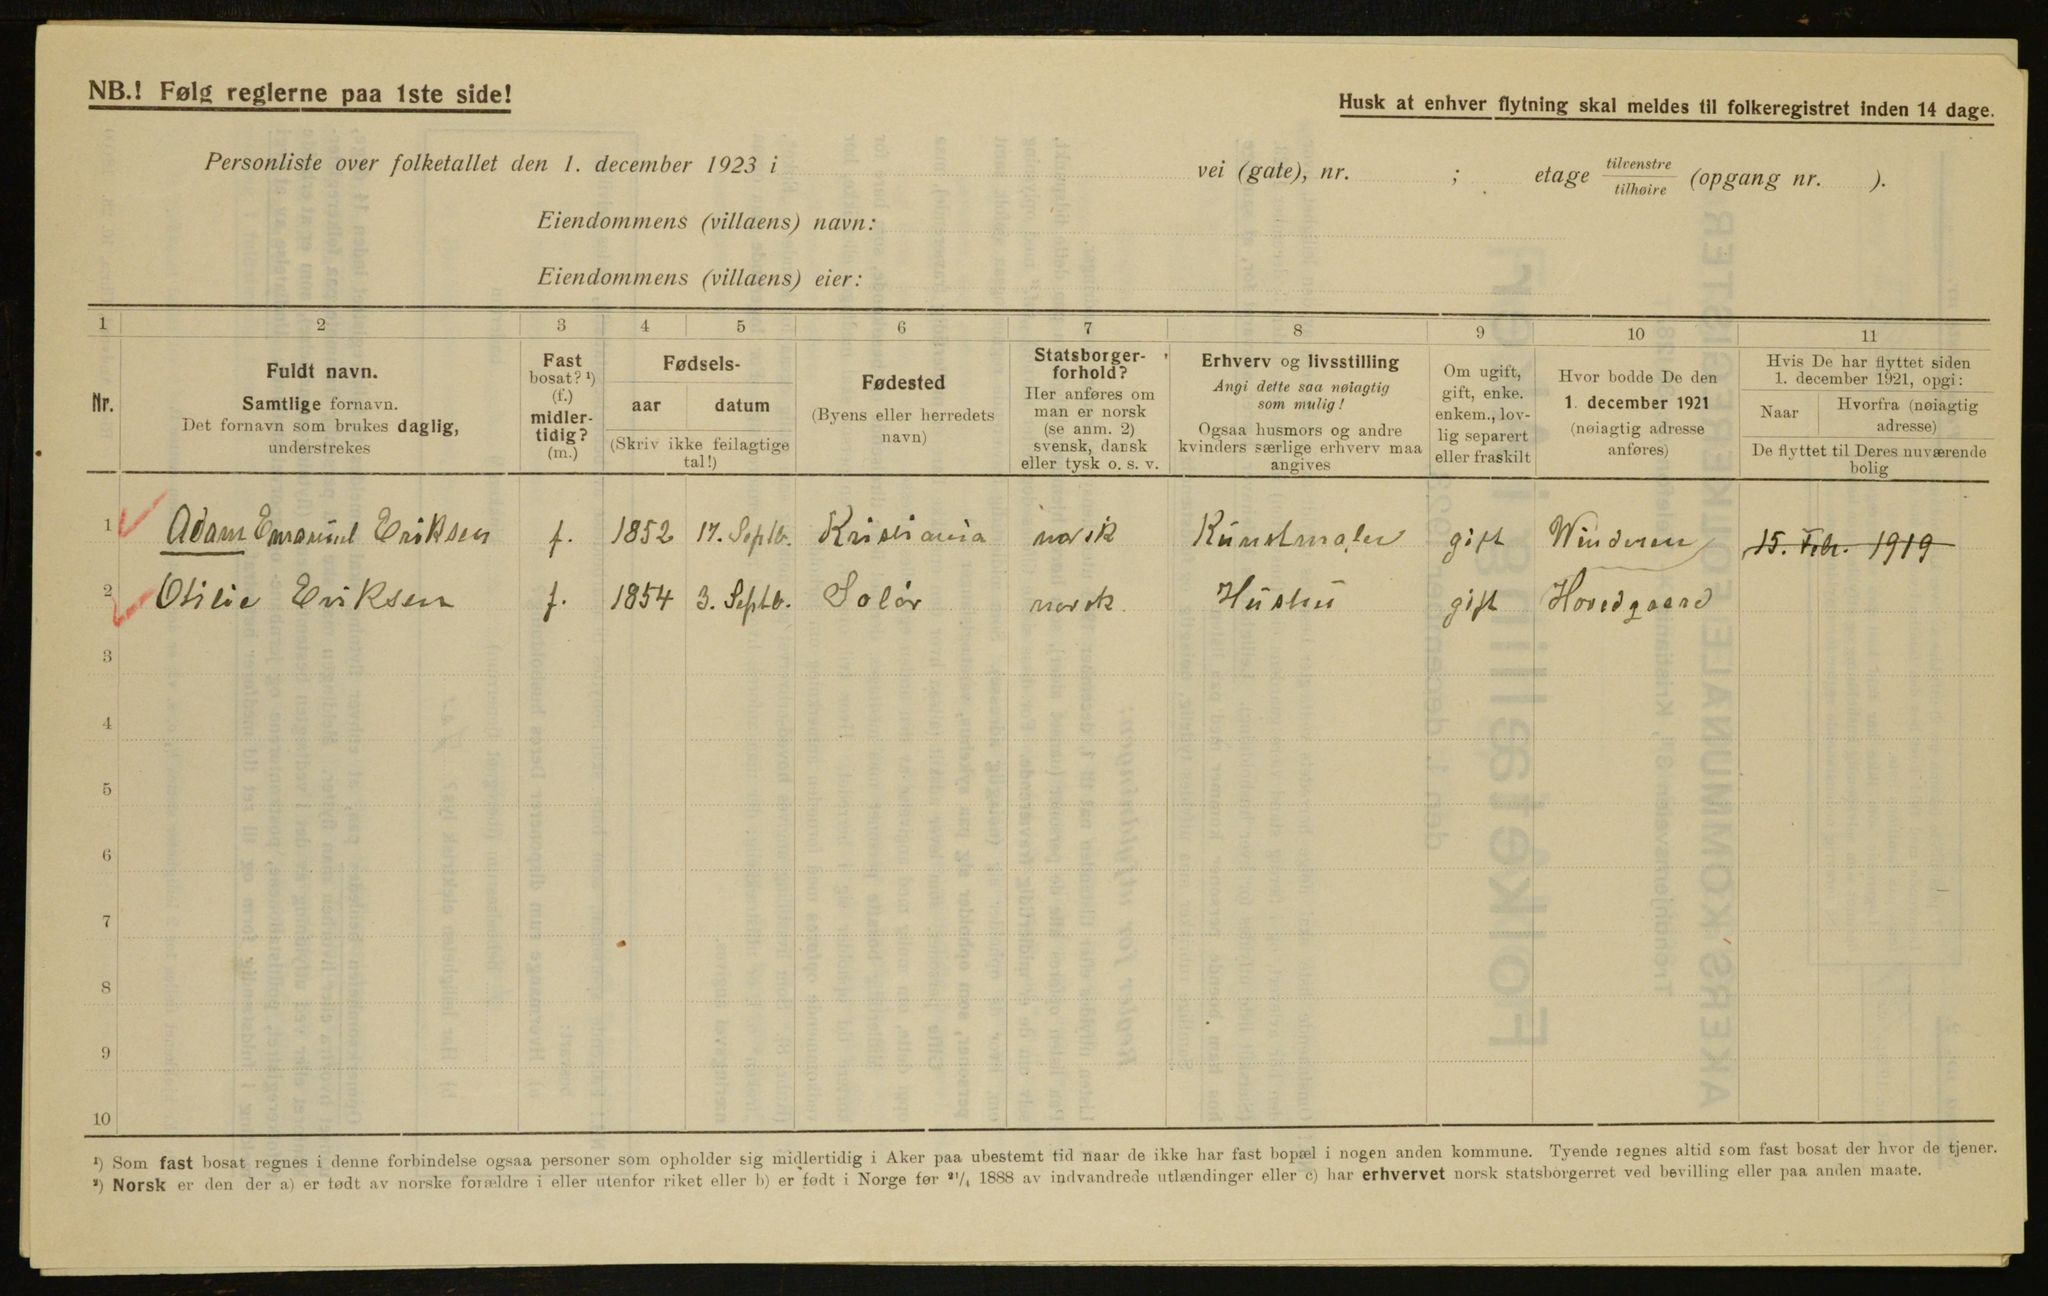 NB.! Følg reglerne paa 1ste side!
Husk at enhver flytning skal meldes til folkeregistret inden 14 dage.
Personliste over folketallet den 1. december 1923 i vei (gate), nr. ; etage tilvenstre / tilhøire (opgang nr. ).
Eiendommens (villaens) navn:
Eiendommens (villaens) eier:
1 2 3 4 5 6 7 8 9 10 11
Nr.
Fuldt navn.
Samtlige fornavn.
Det fornavn som brukes daglig,
understrekes
Fast
bosat? ¹)
(f.)
midler-
tidig?
(m.)
Fødsels-
aar datum
(Skriv ikke feilagtige
tal!)
Fødested
(Byens eller herredets
navn)
Statsborger-
forhold?
Her anføres om
man er norsk
(se anm. 2)
svensk, dansk
eller tysk o. s. v.
Erhverv og livsstilling
Angi dette saa nøiagtig
som mulig!
Ogsaa husmors og andre
kvinders særlige erhverv maa
angives
Om ugift,
gift, enke.
enkem., lov-
lig separert
eller fraskilt
Hvor bodde De den
1. december 1921
(nøiagtig adresse
anføres)
Hvis De har flyttet siden
1. december 1921, opgi:
Naar Hvorfra (nøiagtig
adresse)
De flyttet til Deres nuværende
bolig
1 Adam Emanuel Eriksen f. 1852 17. Septb. Kristiania norsk Kunstmaler gift Winderen 15. Febr. 1919
2 Otilie Eriksen f. 1854 3. Septb. Solør norsk Hustru gift Hovedgaard
3
4
5
6
7
8
9
10
¹) Som fast bosat regnes i denne forbindelse ogsaa personer som opholder sig midlertidig i Aker paa ubestemt tid naar de ikke har fast bopæl i nogen anden kommune. Tyende regnes altid som fast bosat der hvor de tjener.
²) Norsk er den der a) er født av norske forældre i eller utenfor riket eller b) er født i Norge før ²¹/₄ 1888 av indvandrede utlændinger eller c) har erhvervet norsk statsborgerret ved bevilling eller paa anden maate.